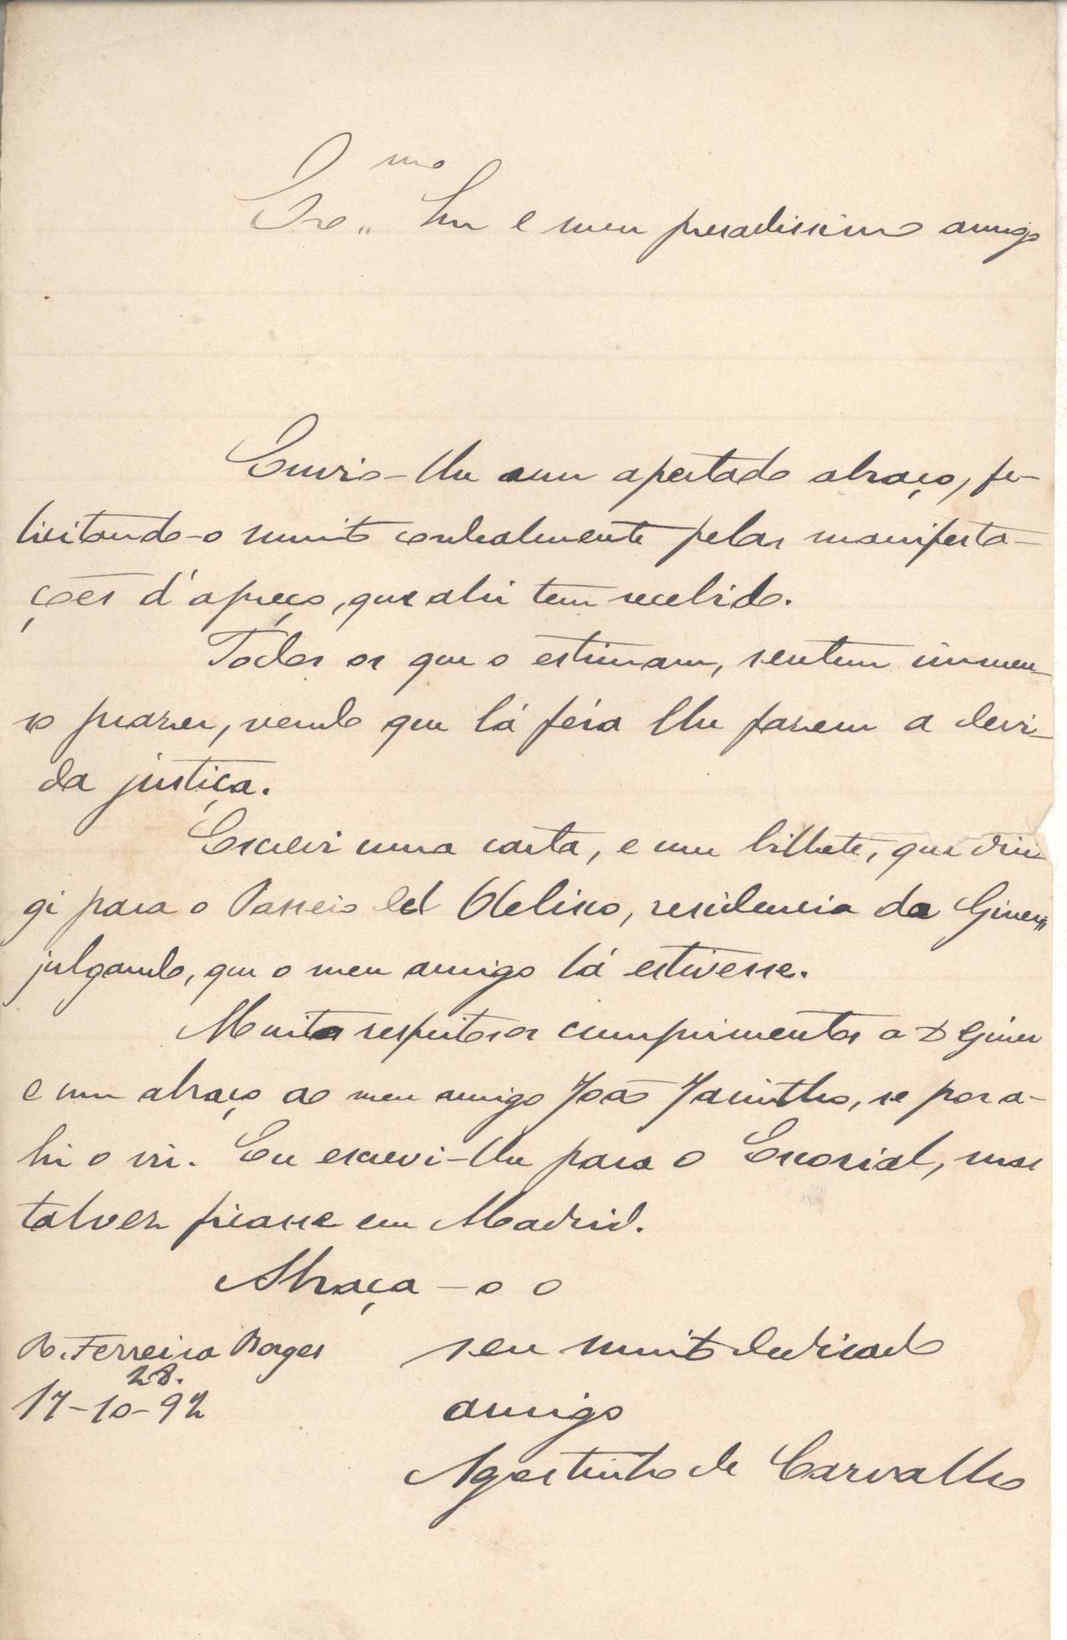 Exmo Snr e meu presadissimo amigo
Envio-lhe um apertado abraço, fe-
licitando-o muito cordealmente pelas manifesta-
ções d'apreço, que ahi tem recebido.
Todos os que o estimam, sentem immen-
so prazer, vendo que lá fóra lhe fazem a devi-
da justiça.
Escrevi uma carta, e um bilhete, que diri-
gi para o Passeio del Obelisco, residencia da Giner,
julgando, que o meu amigo lá estivesse.
Muitos respeitosos cumprimentos a D Giner
e um abraço ao meu amigo João Jacintho, se por a-
hi o vir. Eu escrevi-lhe para o Escorial, mas
talvez ficasse em Madrid.
Abraça-o o
seu muito dedicado
amigo
Agostinho de Carvalho
R. Ferreira Borges
28.
17-10-92